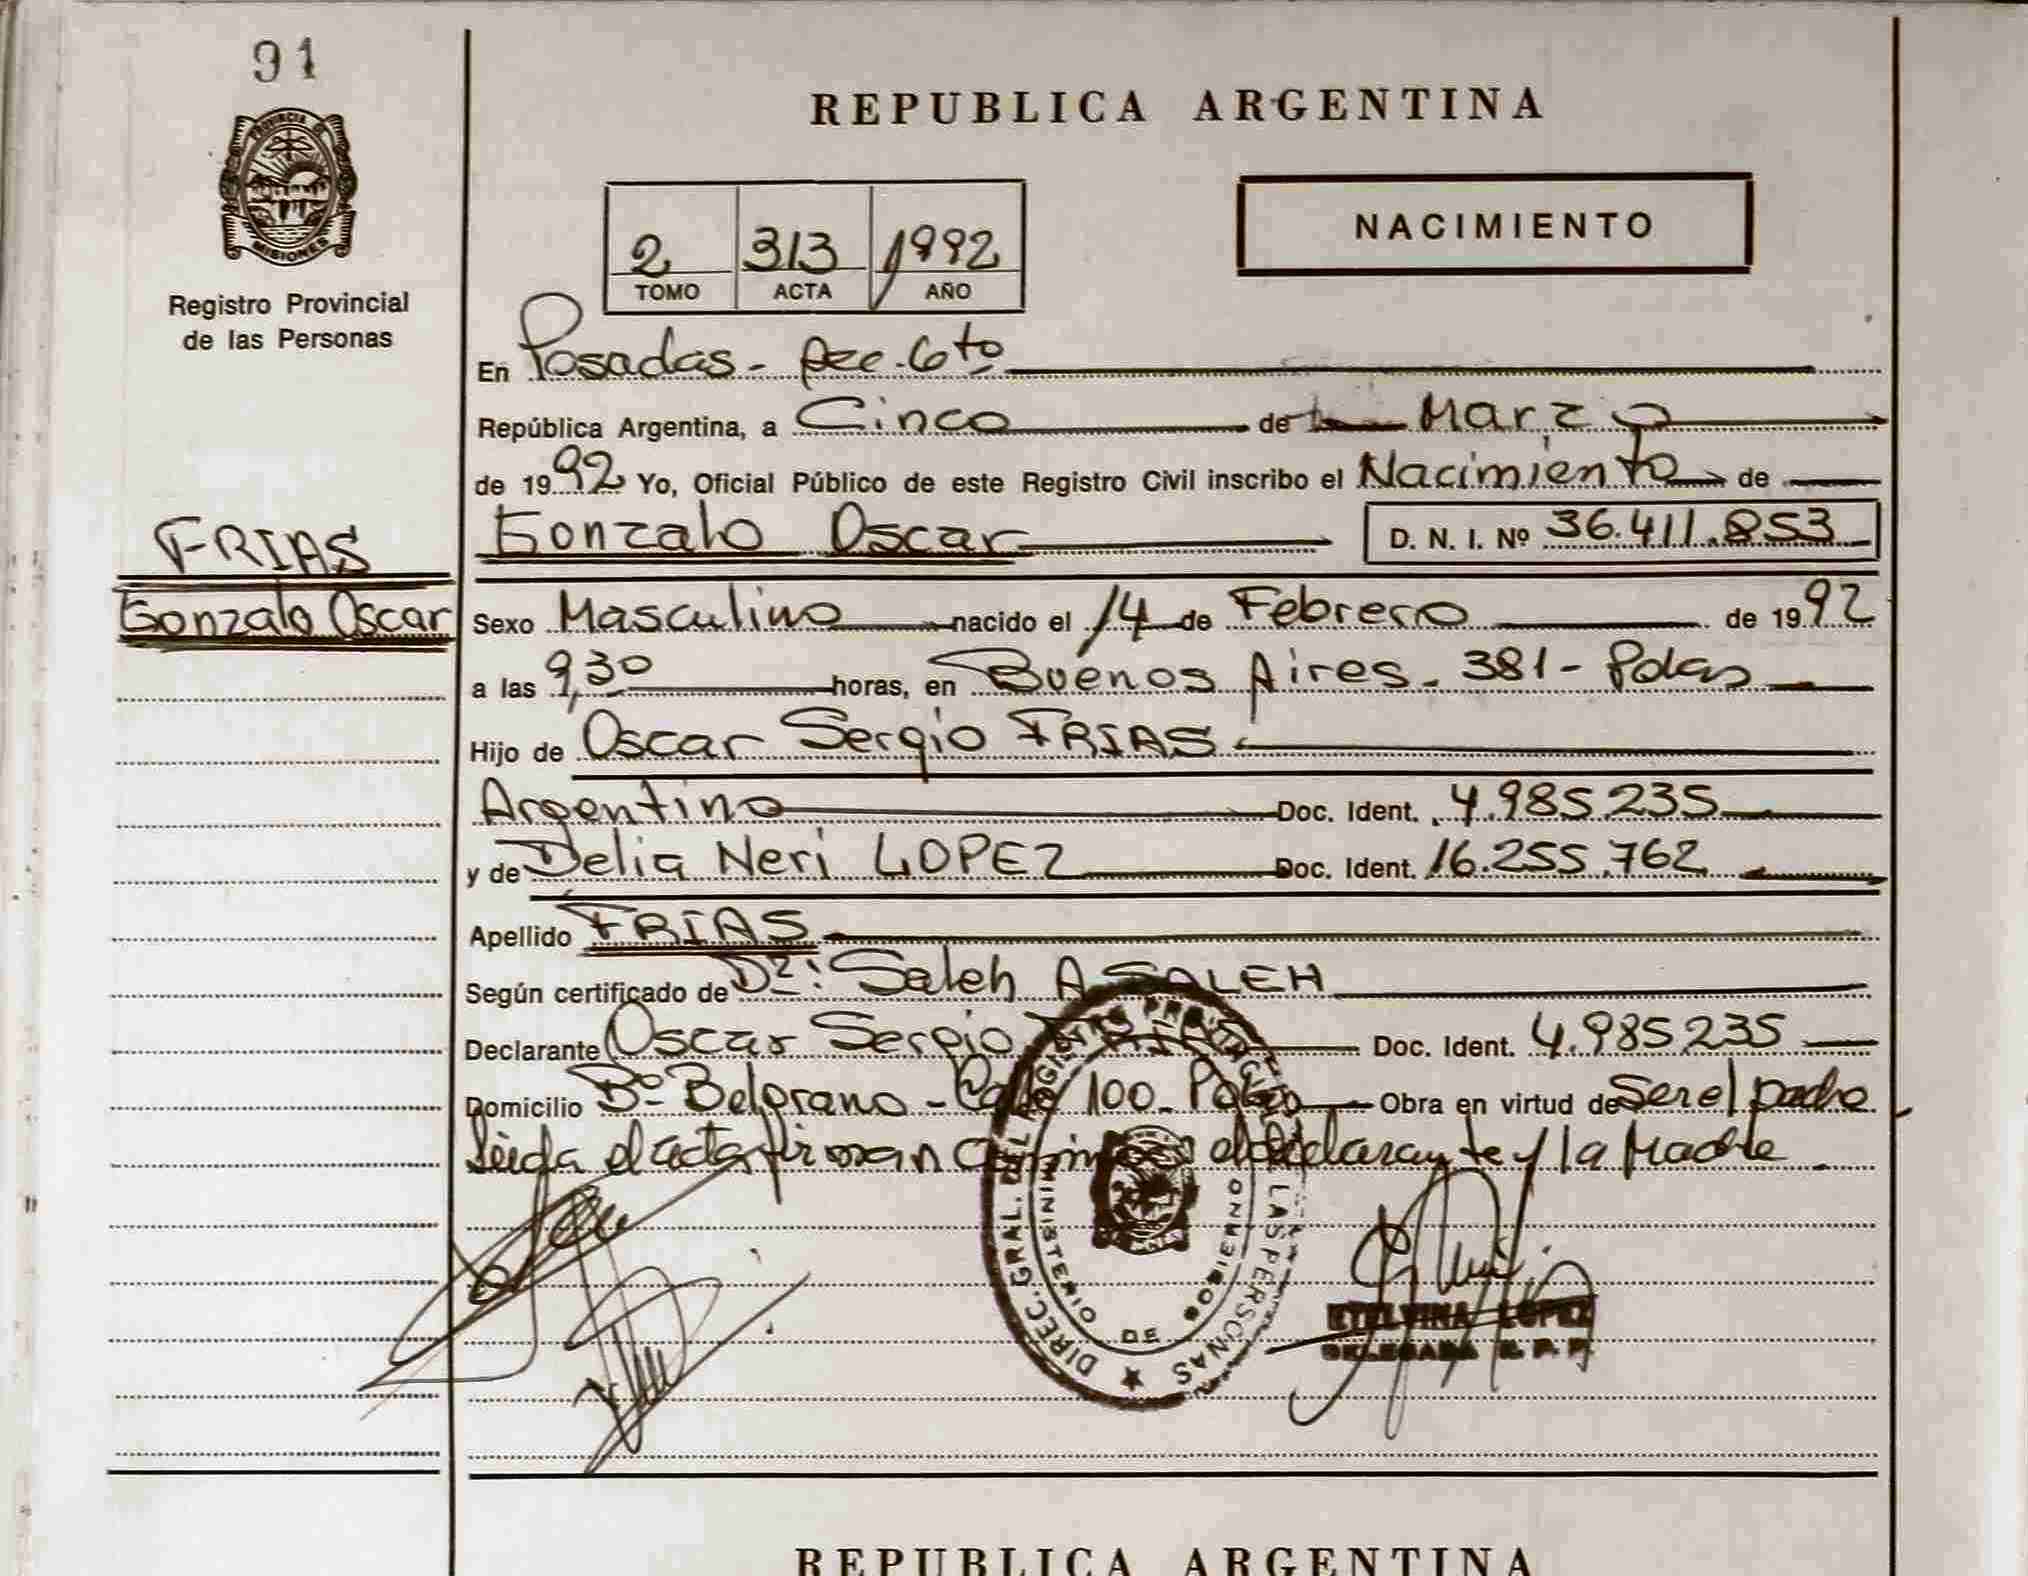 91
PROVINCIA DE
MISIONES
Registro Provincial
de las Personas
FRIAS
Gonzalo Oscar
REPUBLICA ARGENTINA
2 313 1992
TOMO ACTA AÑO
NACIMIENTO
En Posadas - Secc. 6to
República Argentina, a Cinco de Marzo
de 1992 Yo, Oficial Público de este Registro Civil inscribo el Nacimiento de
Gonzalo Oscar D. N. I. Nº 36.411.853
Sexo Masculino nacido el 14 de Febrero de 1992
a las 9,30 horas, en Buenos Aires. 381 - Pdas
Hijo de Oscar Sergio FRIAS
Argentino Doc. Ident. 4.985.235
y de Delia Neri LOPEZ Doc. Ident. 16.255.762
Apellido FRIAS
Según certificado de Dr: Saleh A SALEH
Declarante Oscar Sergio FRIAS Doc. Ident. 4.985.235
Domicilio Bº Belgrano - Calle 100 - Pdas Obra en virtud de Ser el padre
Leida el acta firman conmigo el declarante y la Madre
DIREC. GRAL. DEL REGISTRO PROVINCIAL DE LAS PERSONAS
MINISTERIO DE GOBIERNO
ETELVINA LOPEZ
DELEGADA R. P. P.
REPUBLICA ARGENTINA